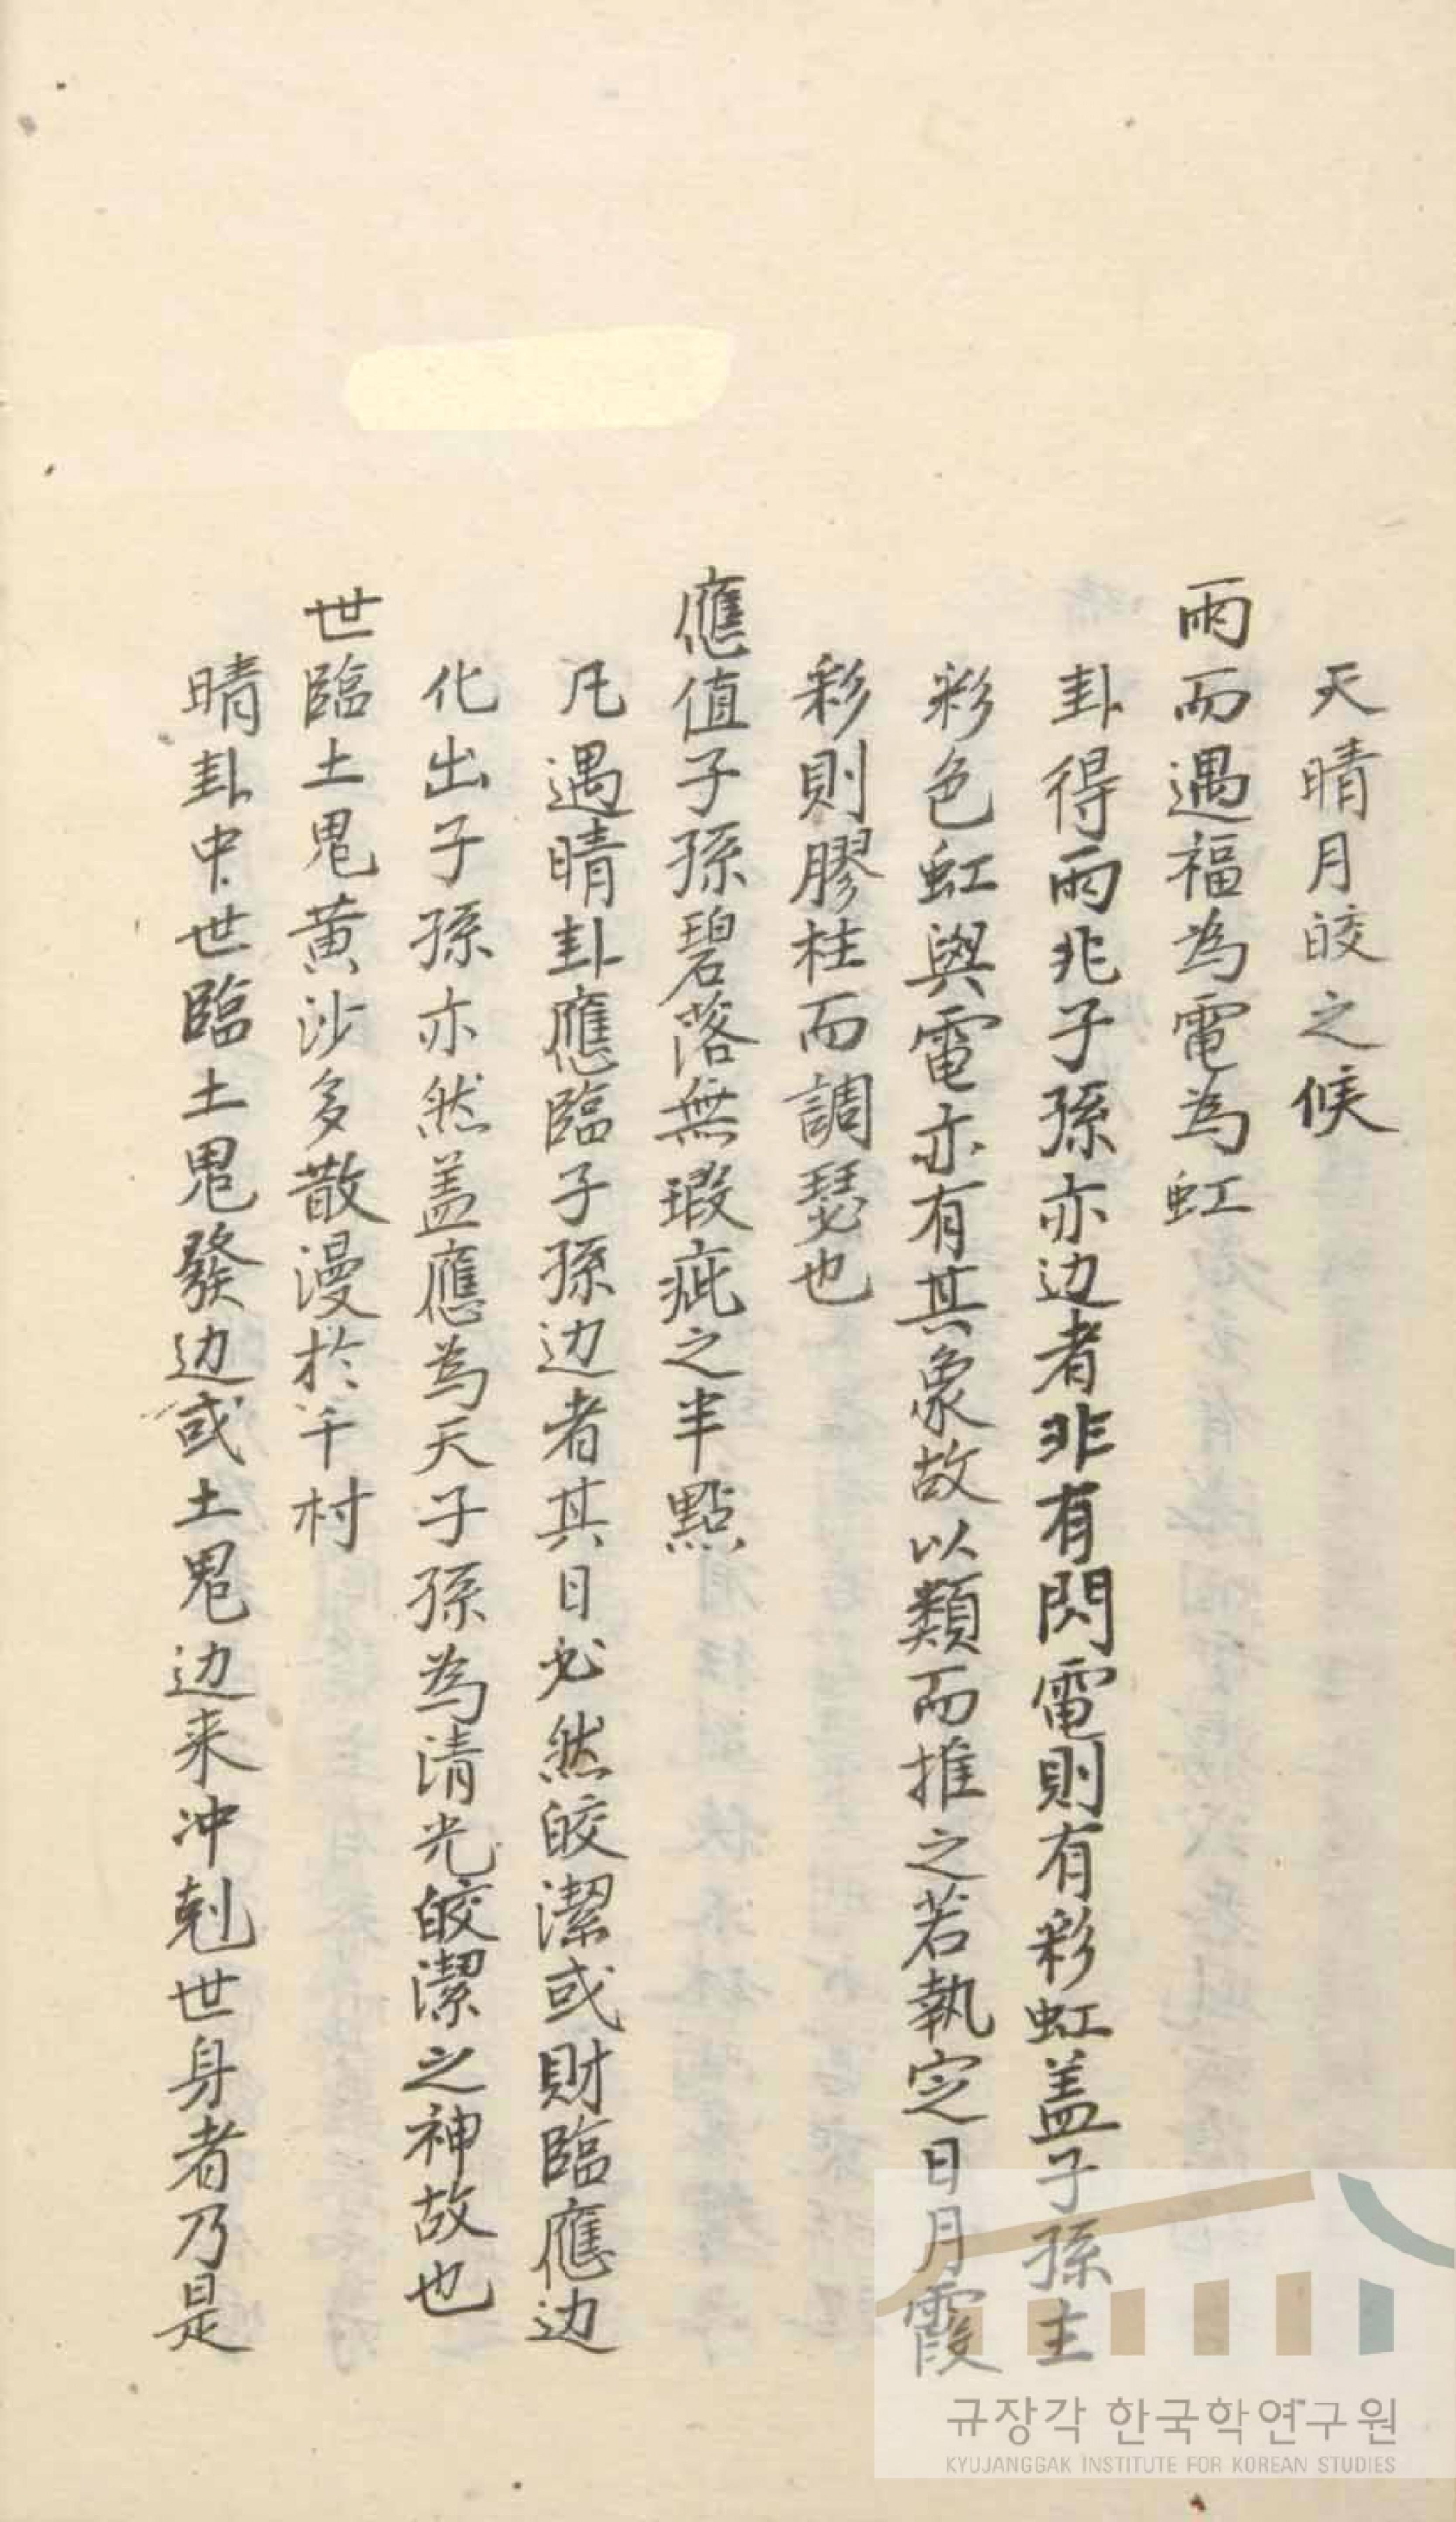 天晴月皎之候
雨而遇福為電為虹
卦得雨兆子孫亦边者非有閃電則有彩虹盖子孫主
彩色虹與電亦有其象故以類而推之若執定日月霞
彩則膠柱而調瑟也
應值子孫碧落無瑕疵之半點
凡遇晴卦應臨子孫边者其日必然皎潔或財臨應边
化出子孫亦然盖應為天子孫為清光皎潔之神故也
世臨土鬼黄沙多散漫於千村
晴卦中世臨土鬼發边或土鬼边来冲剋世身者乃是
규장각 한국학연구원
KYUJANGGAK INSTITUTE FOR KOREAN STUDIES